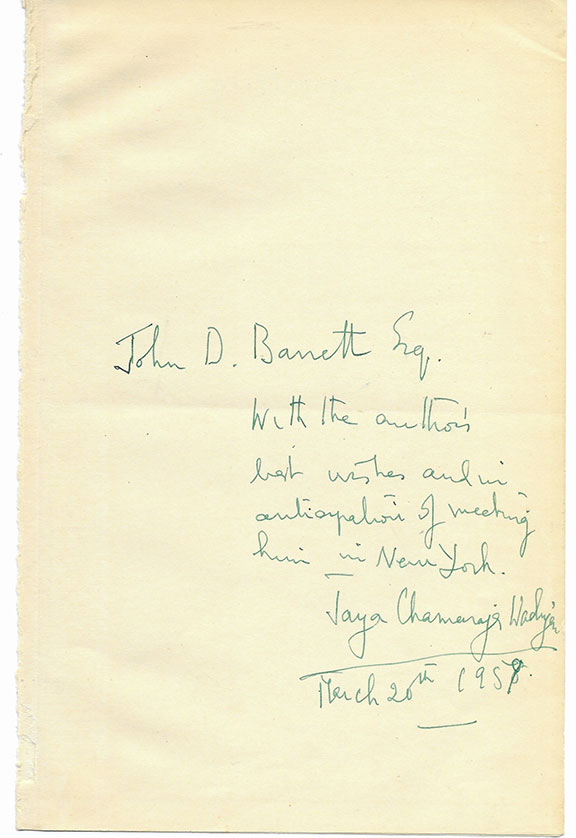 John D. Barrett Esq.
With the author's
best wishes and in
anticipation of meeting
him in New York.
Jaya Chamaraja Wadiyar
March 20th 1958.